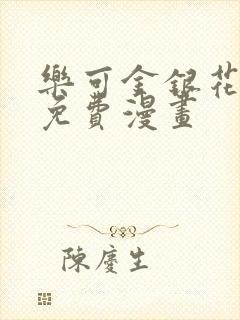 樂可金銀花
免費漫畫
陳慶生